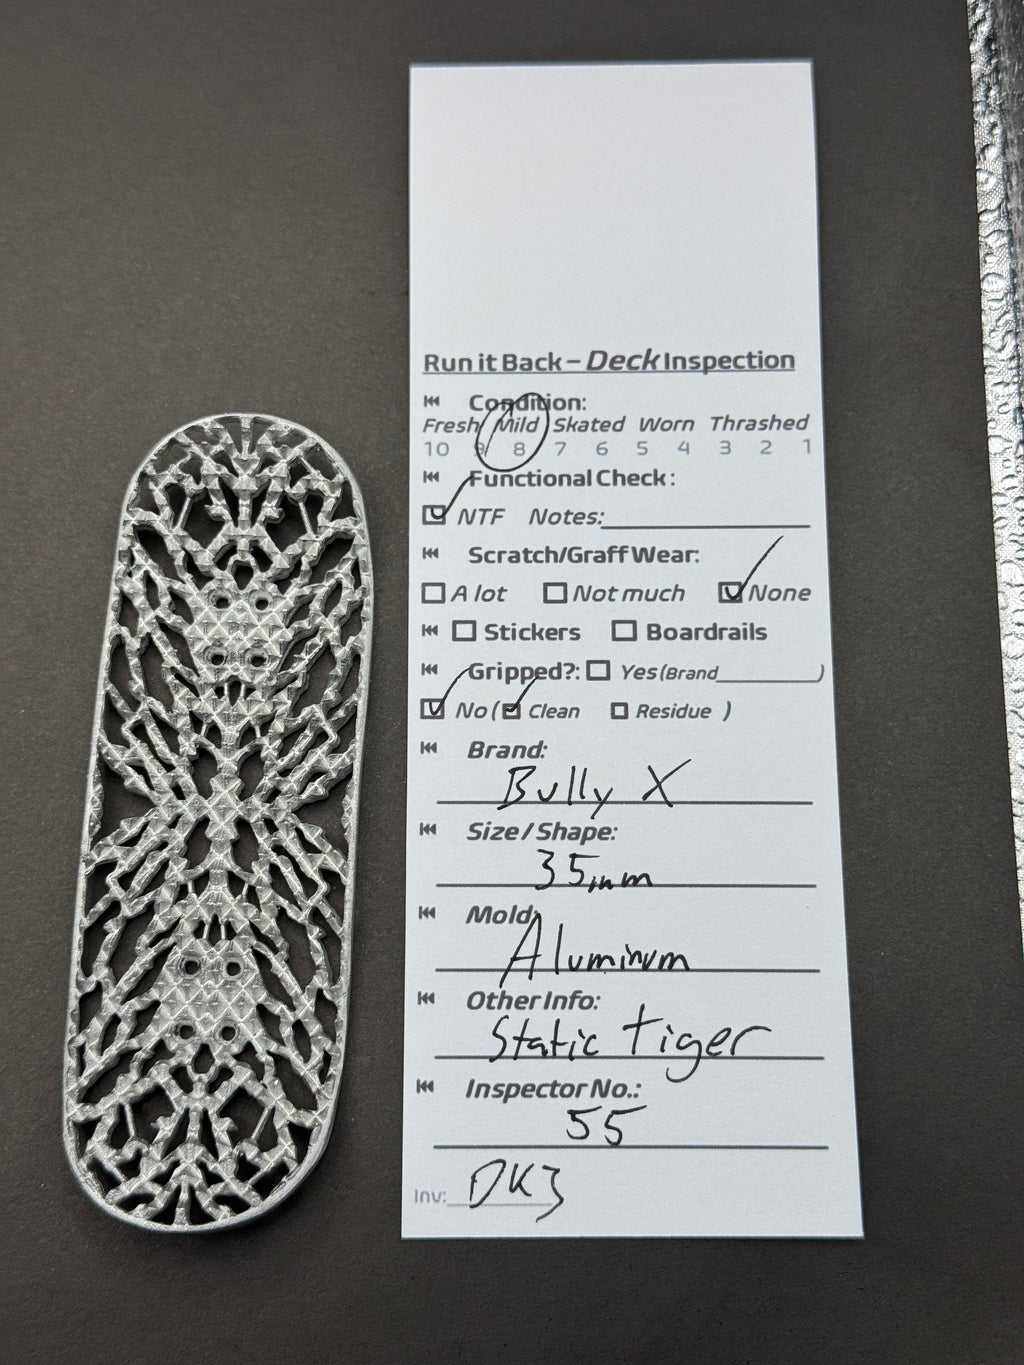 Run it Back – Deck Inspection
Condition:
Fresh Mild Skated Worn Thrashed
10 9 8 7 6 5 4 3 2 1
Functional Check:
NTF Notes:
Scratch/Graff Wear:
A lot Not much None
Stickers Boardrails
Gripped?: Yes (Brand )
No ( Clean Residue )
Brand:
Bully X
Size / Shape:
35mm
Mold:
Aluminum
Other Info:
Static Tiger
Inspector No.:
55
Inv: DK3